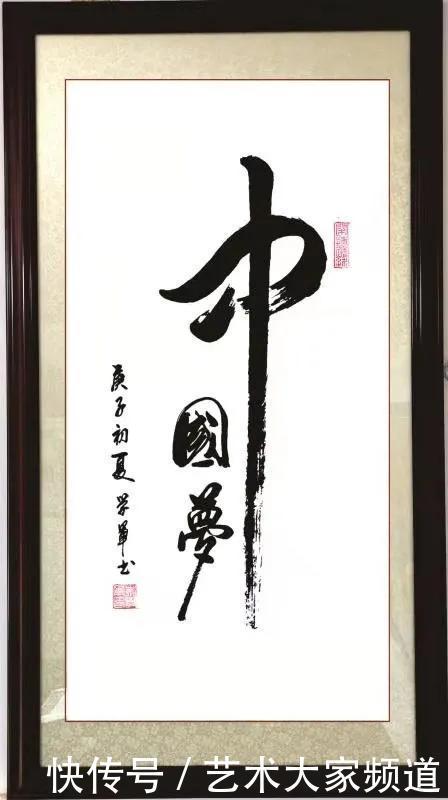 中
國夢
庚子初夏 学軍书
快传号 / 艺术大家频道